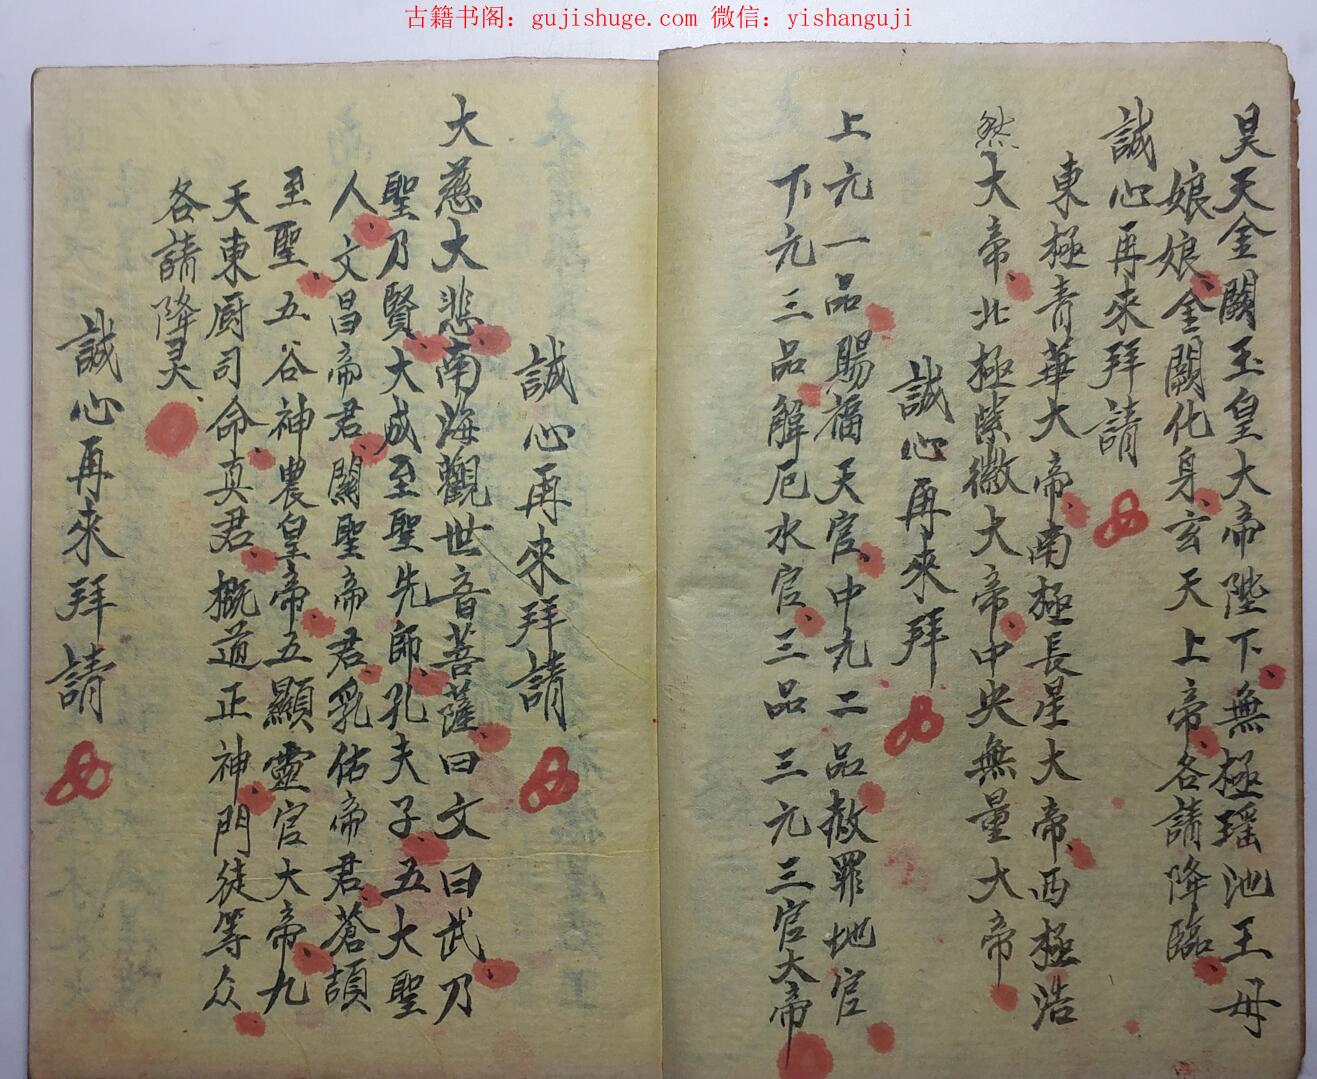 古籍书阁：gujishuge.com 微信：yishanguji
昊天金闕玉皇大帝陛下、無極瑶池王母
娘娘、金闕化身、玄天上帝、各請降臨、
誠心再来拜請
東極青華大帝、南極長星大帝、西極浩
然大帝、北極紫微大帝、中央無量大帝
誠心再來拜
上元一品賜福天官、中元二品赦罪地官
下元三品解厄水官、三品三元三官大帝
誠心再來拜請
大慈大悲、南海觀世音菩薩、曰文曰武、乃
聖乃賢、大成至聖先師、孔夫子、五大聖
人、文昌帝君、關聖帝君、乳佑帝君、蒼頡
至聖、五谷神農皇帝、五顯靈官大帝、九
天東厨司命真君、概道正神、門徒等众
各請降灵、
誠心再來拜請